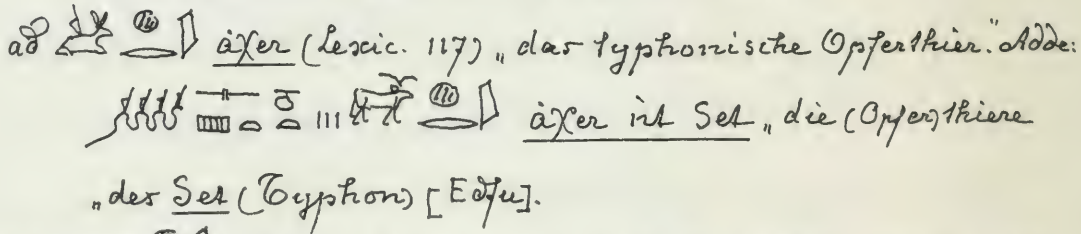 ad áχer (Lexic. 117) „das typhonische Opferthier." Adde:
áχer int Set „die (Opfer)thiere
„der Set (Typhon) [Edfu].